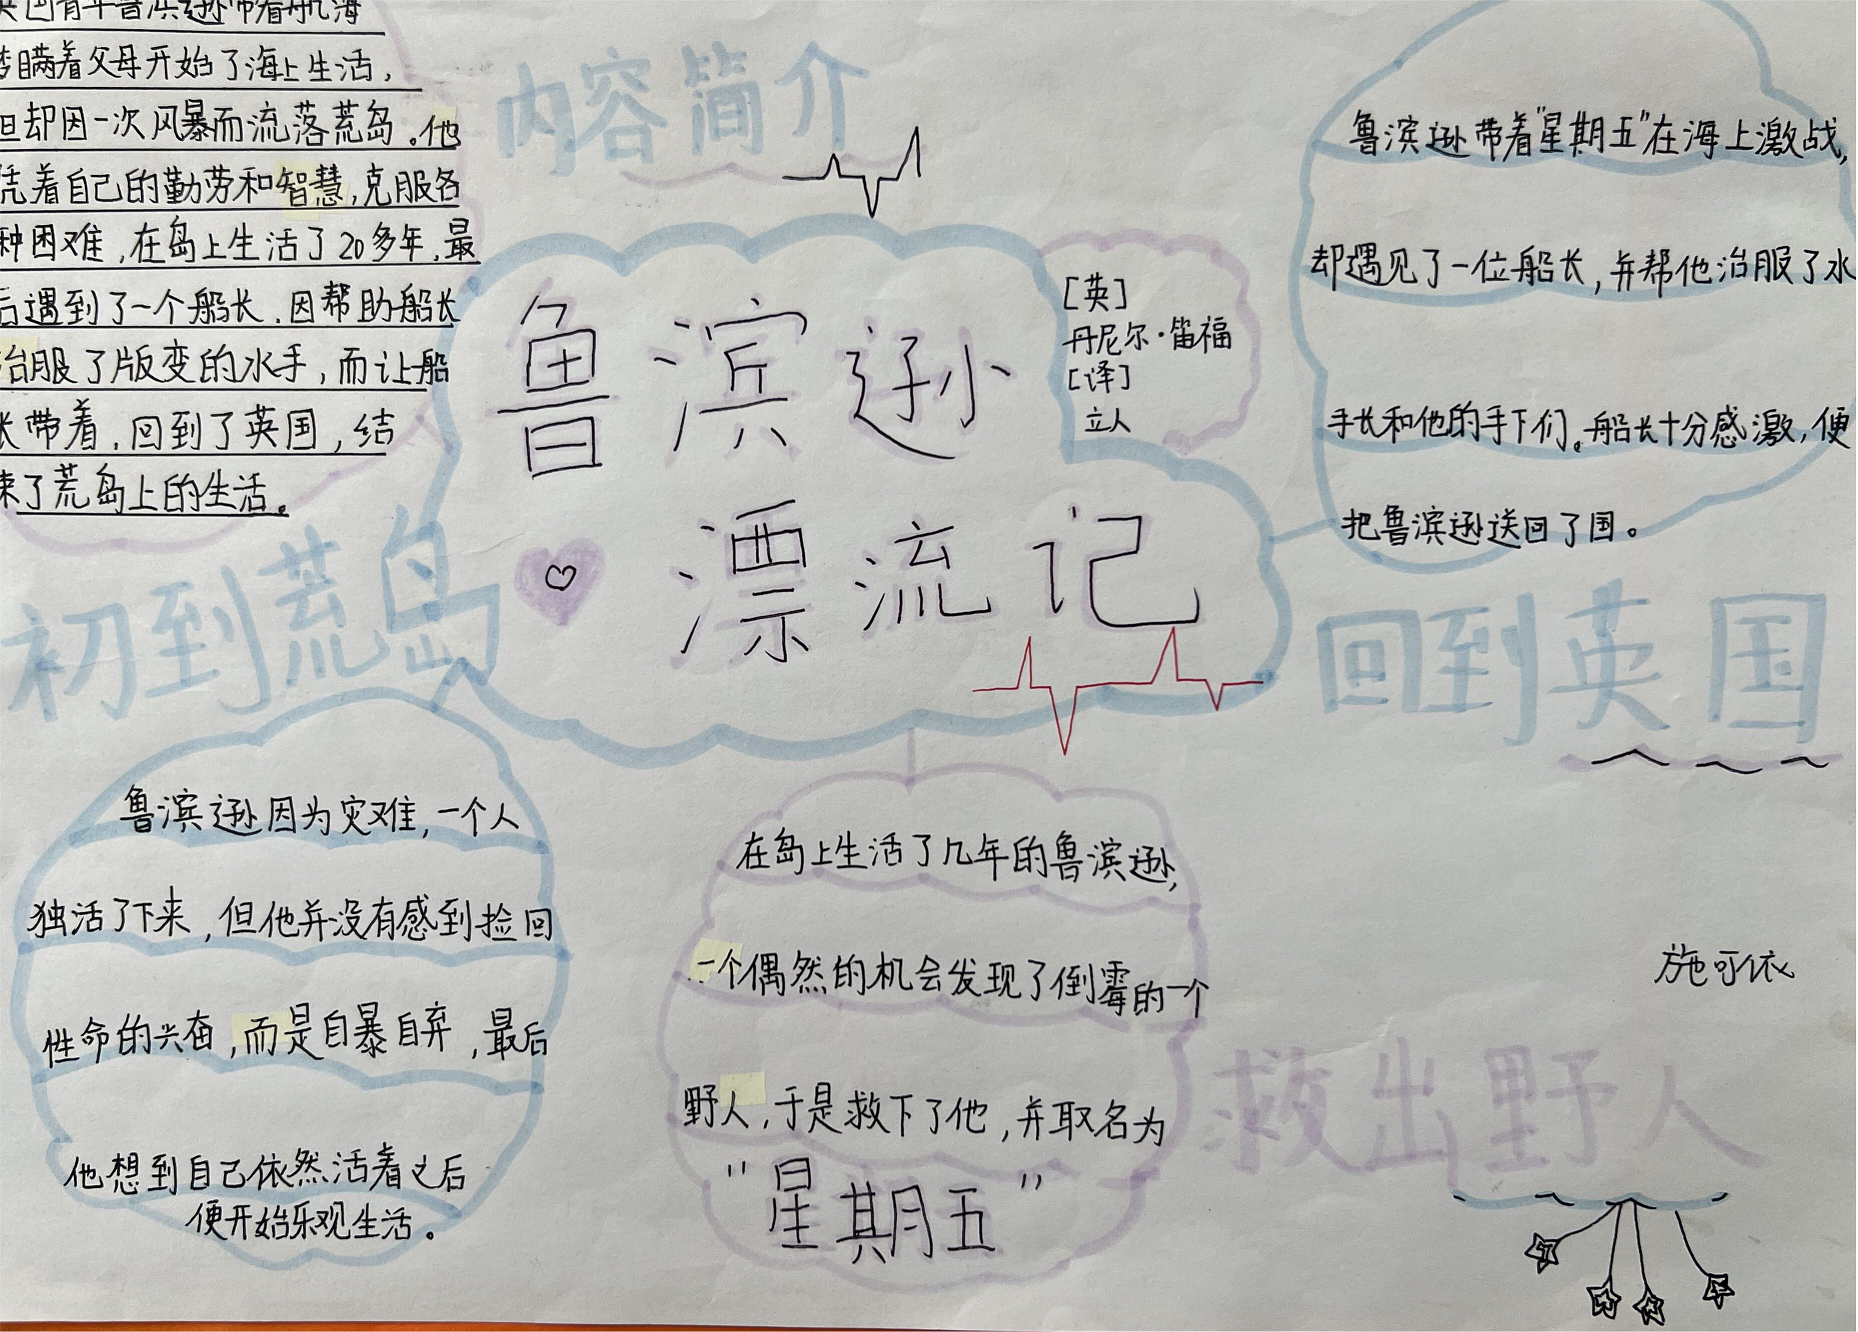 英国青年鲁滨逊带着航海
瞒着父母开始了海上生活，
但却因一次风暴而流落荒岛。他
凭着自己的勤劳和智慧，克服各
种困难，在岛上生活了20多年，最
后遇到了一个船长．因帮助船长
治服了版变的水手，而让船
长带着．回到了英国，结
束了荒岛上的生活。
内容简介
鲁滨逊
漂流记
[英]
丹尼尔·笛福
[译]
立人
鲁滨逊带着"星期五"在海上激战，
却遇见了一位船长，并帮他治服了水
手长和他的手下们。船长十分感激，便
把鲁滨逊送回了国。
回到英国
初到荒岛
鲁滨逊因为灾难，一个人
独活了下来，但他并没有感到捡回
性命的兴奋，而是自暴自弃，最后
他想到自己依然活着之后
便开始乐观生活。
在岛上生活了几年的鲁滨逊，
一个偶然的机会发现了倒霉的一个
野人，于是救下了他，并取名为
"星期五"
救出野人
施可依